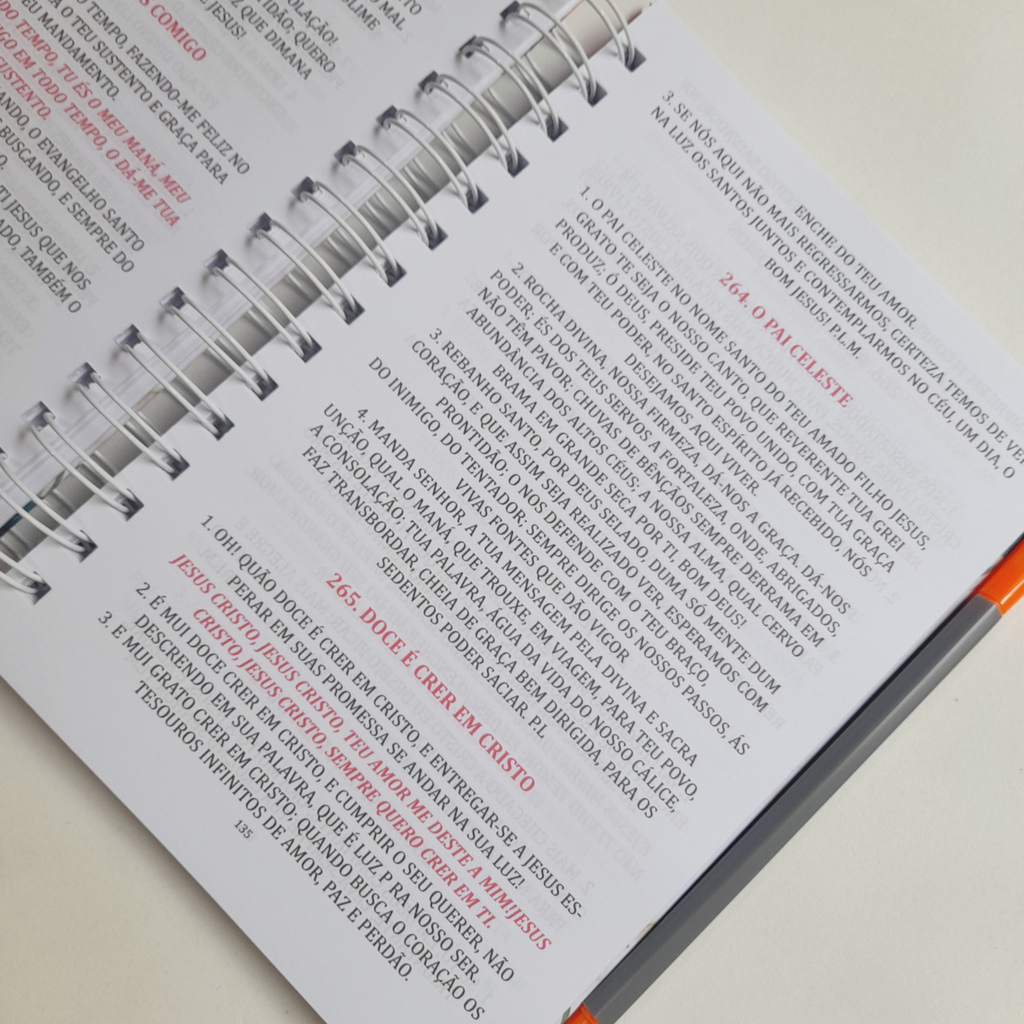 OLAÇÃO!
TIDÃO, QUERO
Z QUE DIMANA
E JESUS!
S COMIGO
O TEMPO, FAZENDO-ME FELIZ NO
A O TEU SUSTENTO E GRAÇA PARA
EU MANDAMENTO.
DO TEMPO, TU ÉS O MEU MANÁ, MEU
IGO EM TODO TEMPO, O DÁ-ME TUA
USTENTO.
ANDO, O EVANGELHO SANTO
BUSCANDO, E SEMPRE DO
O.
TI JESUS QUE NOS
ADO, TAMBÉM O
ENCHE DO TEU AMOR.
3. SE NÓS AQUI NÃO MAIS REGRESSARMOS, CERTEZA TEMOS DE VE
NA LUZ OS SANTOS JUNTOS E CONTEMPLARMOS NO CÉU, UM DIA, O
BOM JESUS! P.L.M.
264. O PAI CELESTE
1. O PAI CELESTE NO NOME SANTO DO TEU AMADO FILHO JESUS,
GRATO TE SEJA O NOSSO CANTO, QUE REVERENTE TUA GREI
PRODUZ; Ó DEUS, PRESIDE TEU POVO UNIDO, COM TUA GRAÇA
E COM TEU PODER, NO SANTO ESPÍRITO JÁ RECEBIDO, NÓS
DESEJAMOS AQUI VIVER.
2. ROCHA DIVINA, NOSSA FIRMEZA, DÁ-NOS A GRAÇA, DÁ-NOS
PODER, ÉS DOS TEUS SERVOS A FORTALEZA, ONDE, ABRIGADOS,
NÃO TÊM PAVOR; CHUVAS DE BÊNÇÃOS SEMPRE DERRAMA EM
ABUNDÂNCIA DOS ALTOS CÉUS; A NOSSA ALMA, QUAL CERVO
BRAMA EM GRANDE SECA POR TI, BOM DEUS!
3. REBANHO SANTO, POR DEUS SELADO, DUMA SÓ MENTE DUM
CORAÇÃO, E QUE ASSIM SEJA REALIZADO VER, ESPERAMOS COM
PRONTIDÃO; O NOS DEFENDE COM O TEU BRAÇO,
DO INIMIGO, DO TENTADOR; SEMPRE DIRIGE OS NOSSOS PASSOS, ÁS
VIVAS FONTES QUE DÃO VIGOR
4. MANDA SENHOR, A TUA MENSAGEM PELA DIVINA E SACRA
UNÇÃO, QUAL O MANÁ, QUE TROUXE, EM VIAGEM, PARA TEU POVO,
A CONSOLAÇÃO; TUA PALAVRA, ÁGUA DA VIDA DO NOSSO CÁLICE,
FAZ TRANSBORDAR, CHEIA DE GRAÇA BEM DIRIGIDA, PARA OS
SEDENTOS PODER SACIAR. P.L
265. DOCE É CRER EM CRISTO
1. OH! QUÃO DOCE É CRER EM CRISTO, E ENTREGAR-SE A JESUS ES-
PERAR EM SUAS PROMESSA SE ANDAR NA SUA LUZ!
JESUS CRISTO, JESUS CRISTO, TEU AMOR ME DESTE A MIM!JESUS
CRISTO, JESUS CRISTO, SEMPRE QUERO CRER EM TI.
2. É MUI DOCE CRER EM CRISTO, E CUMPRIR O SEU QUERER, NÃO
DESCRENDO EM SUA PALAVRA, QUE É LUZ P RA NOSSO SER.
3. E MUI GRATO CRER EM CRISTO; QUANDO BUSCA O CORAÇÃO OS
TESOUROS INFINITOS DE AMOR, PAZ E PERDÃO.
135